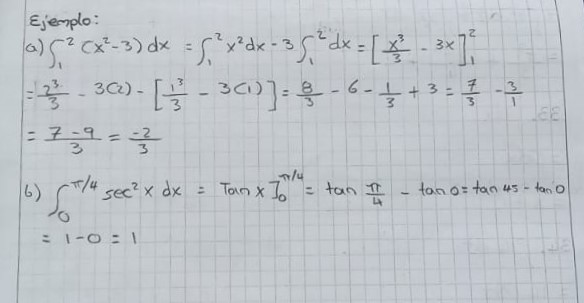 Ejemplo:
a) ∫₁² (x²-3) dx = ∫₁² x² dx - 3 ∫₁² dx = [x³/3 - 3x]₁²
= 2³/3 - 3(2) - [1³/3 - 3(1)] = 8/3 - 6 - 1/3 + 3 = 7/3 - 3/1
= 7-9/3 = -2/3
b) ∫₀^π/4 sec² x dx = Tan x]₀^π/4 = tan π/4 - tan 0 = tan 45 - tan 0
= 1-0 = 1